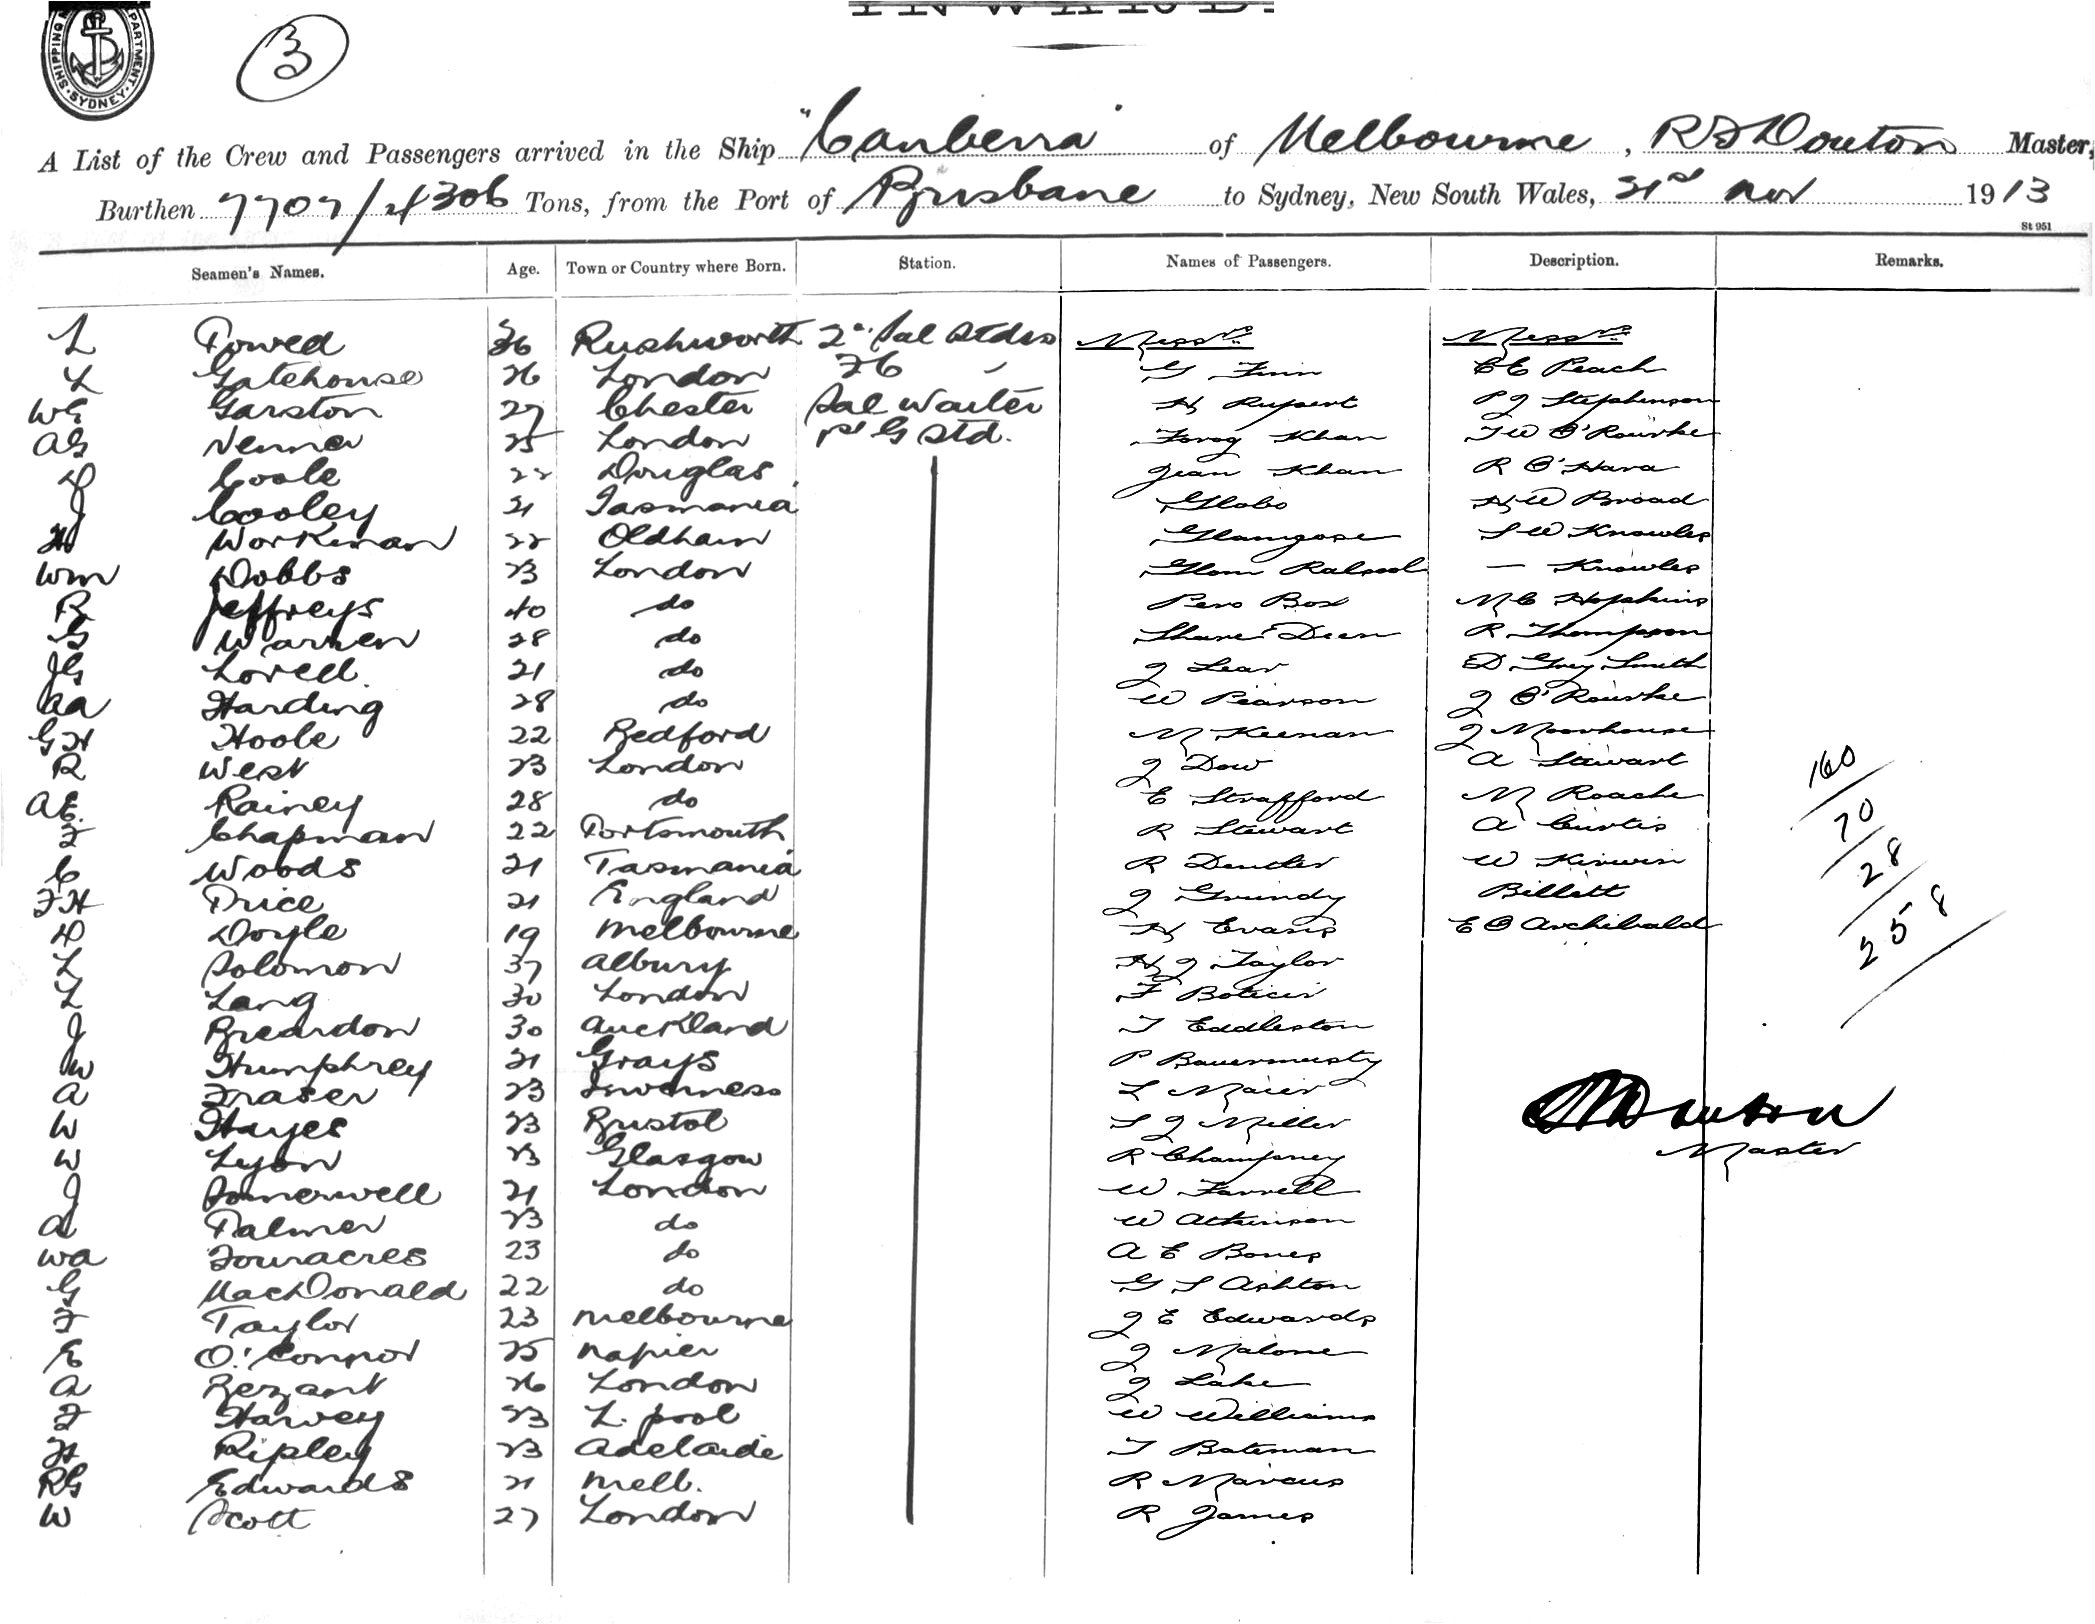 SHIPPING DEPARTMENT. SYDNEY.
3
INWARD.
A List of the Crew and Passengers arrived in the Ship "Canberra" of Melbourne, R D Douton Master,
Burthen 7707/4306 Tons, from the Port of Brisbane to Sydney, New South Wales, 21st Nov 1913
St 951
Seamen's Names. Age. Town or Country where Born. Station. Names of Passengers. Description. Remarks.
L Powed 36 Rushworth 2nd Sal Stdes Messrs Messrs
L Gatehouse 26 London G Finn C E Peach
WG Garston 27 Chester Sal Waiter H Rupert P J Stephenson
AG Nenna 25 London 1st G Std. Forog Khan T W O'Rourke
D Coole 22 Douglas Jean Khan R O'Hara
J Cooley 21 Tasmania Glabo H W Broad
H Workman 22 Oldham Glamgose S W Knowles
Wm Dobbs 23 London Glom — Knowles
R Jeffreys 40 do Pero Box M C Hopkins
G Warren 28 do Share Deen R Thompson
JG Lovell 21 do J Lear D Grey Smith
AA Harding 28 do W Pearson J O'Rourke
GH Hoole 22 Bedford M Keenan J Moorhouse
R West 23 London J Dow A Stewart 160
AE. Rainey 28 do E Strafford M Roache 70
F Chapman 22 Portsmouth R Stewart A Curtis 28
C Woods 21 Tasmania R Dentler W Kirwin 258
FH Price 21 England J Grundy Billett
D Doyle 19 Melbourne H Evans E O Archibald
L Solomon 37 Albury H J Taylor
L Lang 30 London F
J Breardon 30 Auckland T Eddleston
W Humphrey 21 Grays P
A Fraser 23 Inverness L Maier
W Hayes 23 Bristol S J Miller
W Lyon 23 Glasgow R Champney Douton Master
J Somerwell 21 London W Farrell
A Palmer 23 do W Atkinson
WA Fouracres 23 do A E Bones
G MacDonald 22 do G S Ashton
F Taylor 23 Melbourne J E Edwards
E O'Connor 25 Napier J Malone
A Bezant 26 London J Lake
F Harvey 23 L. pool W Williams
H Ripley 23 Adelaide T Bateman
RG Edwards 21 Melb. R Marcus
W Scott 27 London R James